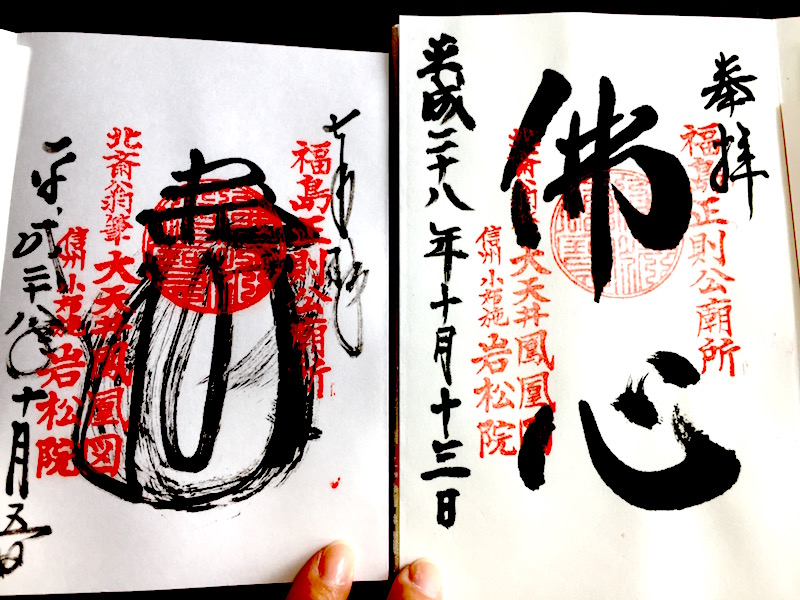 奉拝
福島正則公廟所
佛心
北斎翁筆
大天井鳳凰図
信州小布施
岩松院
平成二十八年十月十三日
福島正則公廟所
北斎翁筆
大天井鳳凰図
信州小布施
岩松院
平成二十八年十月五日